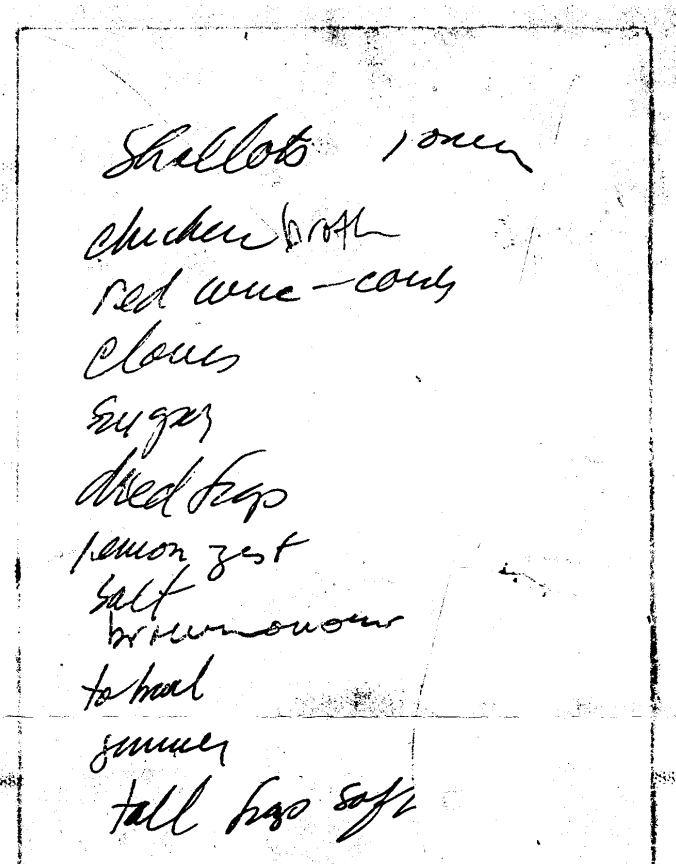 Shallots
chicken broth
red wine -
cloves
sugar
dried figs
lemon zest
salt
brown
to boil
simmer
till figs soft